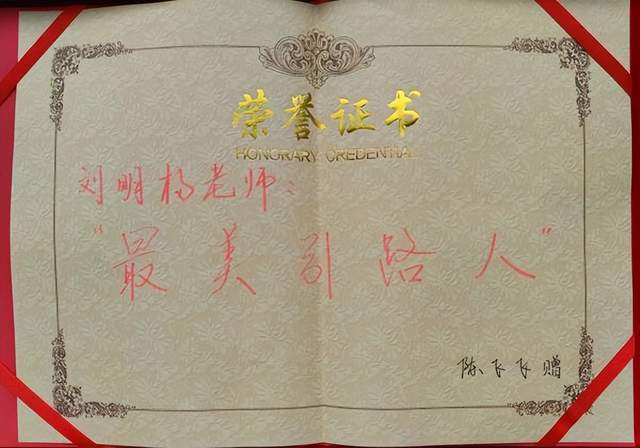 荣誉证书
HONORARY CREDENTIAL
刘明杨老师：
“最美引路人”
陈飞飞赠